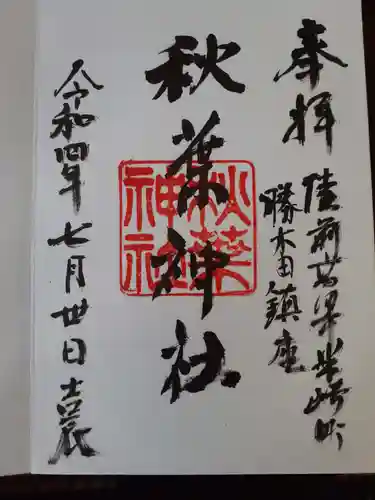 奉拝
陸前高子岩崎町
勝木田鎮座
秋葉神社
秋葉神社
令和四年七月丗日吉辰